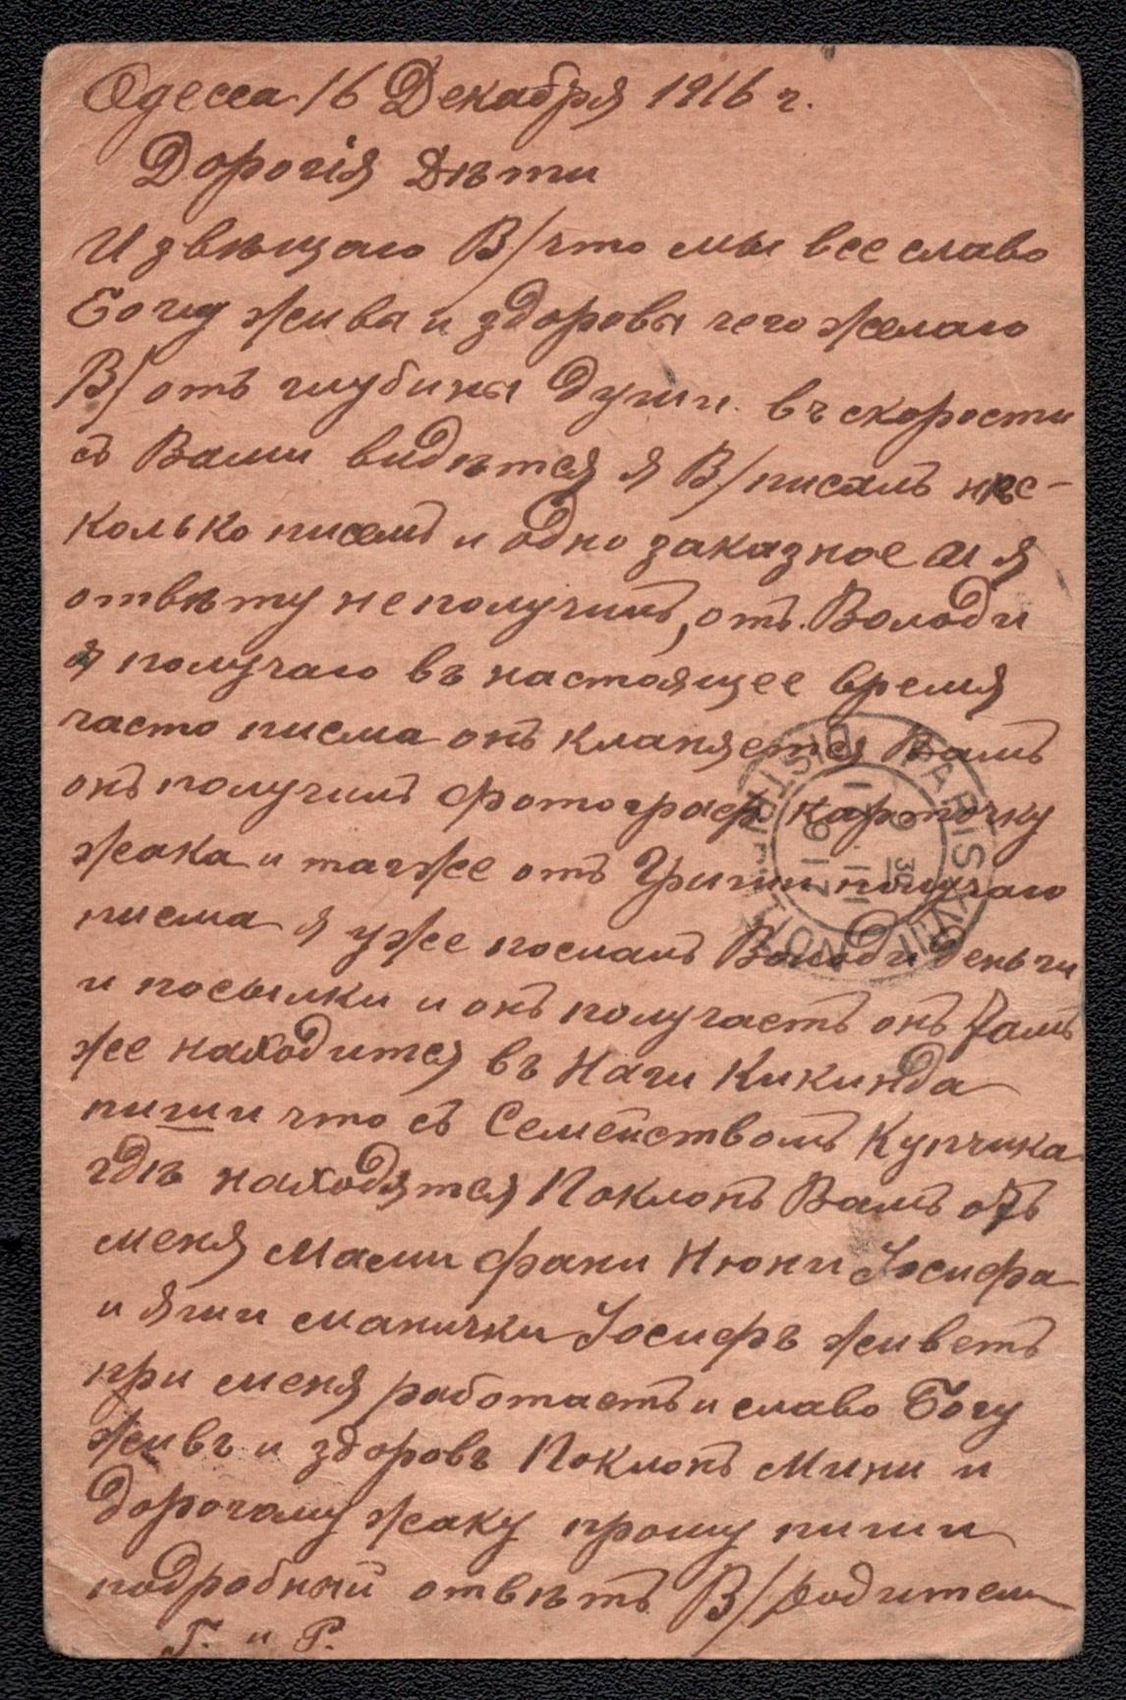 Одесса 16 Декабря 1916 г.
Дорогія Дѣти
Извѣщаю В/ что мы все славо
Богу живы и здоровы чего желаю
В/ отъ глубины души въ скорости
съ Вами видѣтся я В/ писалъ нѣс-
колько писемъ и одно заказное и я
отвѣту не получилъ, отъ Володи
я получаю въ настоящее время
часто писма онъ кланяется Вамъ
онъ получилъ фотограф карточку
Жака и также отъ Гриши получаю
писма я уже послалъ Володи деньги
и посылки и онъ получаетъ онъ тамъ
же находится въ Наги Кикинда
пиши что съ Семействомъ Купчика
гдѣ находятся Поклонъ Вамъ отъ
меня Мами Фани Нюни Іосифа
и Яши Манички Іосифъ живетъ
при меня работаетъ и славо Богу
живъ и здоровъ Поклонъ Мини и
дорогаму Жаку прошу пиши
подробный отвѣтъ В/ родители
Г. и Р.
PARIS
DISTRIBUTION
9 30
1917